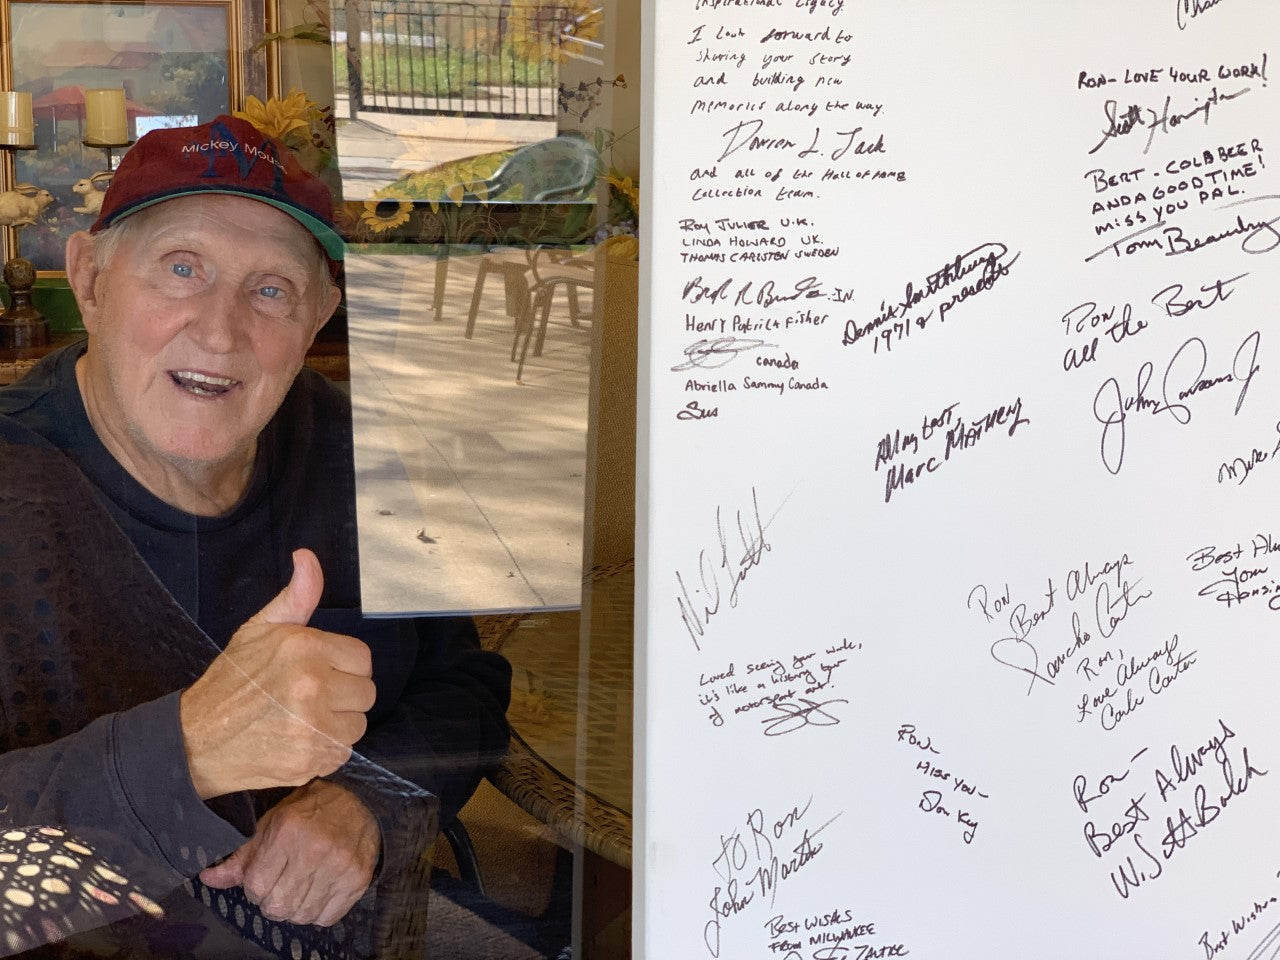 Mickey Mouse
Inspirational Legacy.
I look forward to
sharing your story
and building new
memories along the way.
Darren L. Jack
and all of the Hall of Fame
Collection team.
ROY JULIER U.K.
LINDA HOWARD UK.
THOMAS CARLSTEN SWEDEN
IN.
Henry Patrick Fisher
canada
Abriella Sammy Canada
Sus
Dennis
1971 & present
All my best,
Marc MATHENY
RON- LOVE YOUR WORK!
Scott Harrington
BERT - COLD BEER
AND A GOOD TIME!
MISS YOU PAL.
Tom Beaudry
Ron
all the Best
Johnny Parsons Jr
Mike
Best
Tom
Ron
Best Always
Pancho Carter
Ron,
Love Always
Carla Carter
Loved seeing your work,
it's like a history tour
of motorsport art!
RON-
MISS YOU-
Don Kay
Ron-
Best Always
W. Scott Balch
TO Ron
John Martin
BEST WISHES
FROM MILWAUKEE
Best Wishes